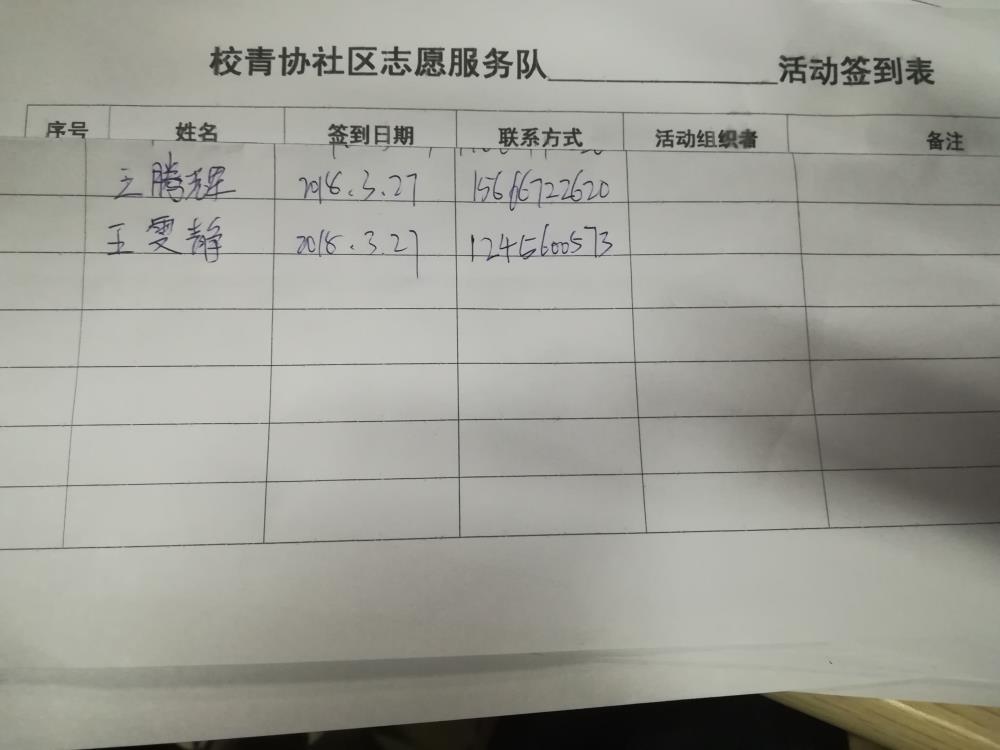 校青协社区志愿服务队____________活动签到表
序号 姓名 签到日期 联系方式 活动组织者 备注
王腾辉 2018.3.27 15666722620
王雯静 2018.3.27 12415600573